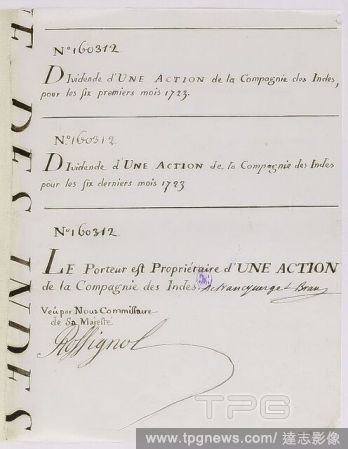 E DES INDES
N.° 160312
DIvidende d'UNE ACTION de la Compagnie des Indes,
pour les six premiers mois 1723.
N.° 160312
DIvidende d'UNE ACTION de la Compagnie des Indes
pour les six derniers mois 1723
N.° 160312
LE Porteur est Propriétaire d'UNE ACTION
de la Compagnie des Indes.
Veü par Nous Commissaire
de Sa Majesté
Rossignol
TPG
www.tpgnews.com / 達志影像